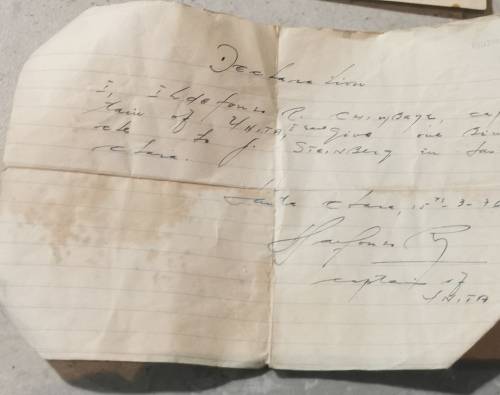 Declaration
I, Ildefonso R. Chimbaya, cap
tain of UNITA, I give one Bin
cle to J. STEINBerg in San
clara.
Santa clara, 15th-3-76
Ildefonso R
captain of
UNITA